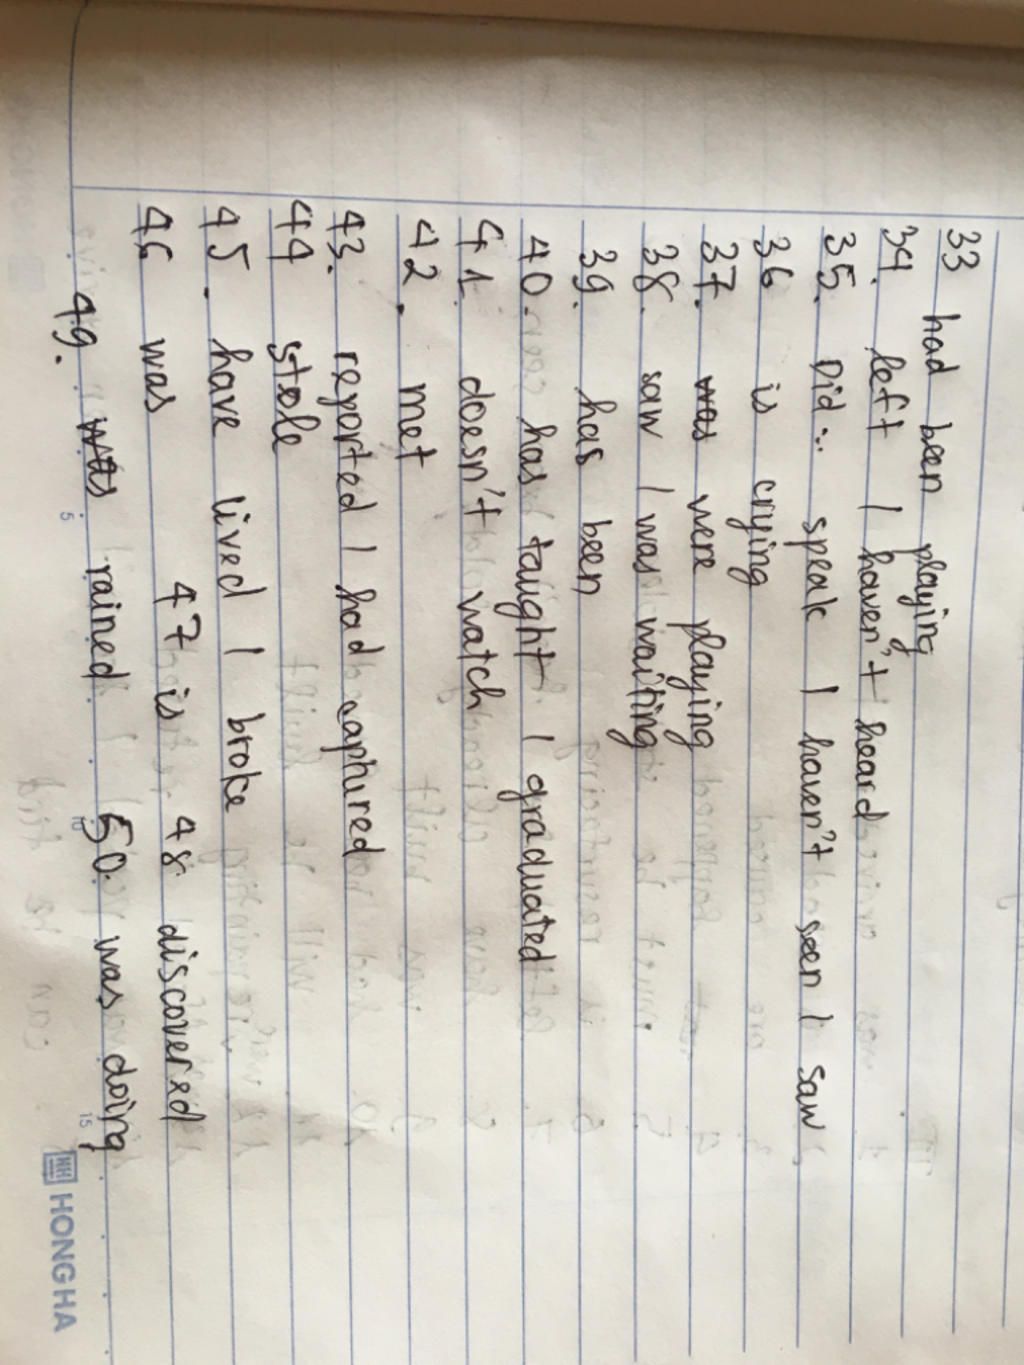 33 had been playing
34. left / haven't heard
35. Did... speak / haven't seen / saw
36 is crying
37. was were playing
38. saw / was waiting
39. has been
40. has taught / graduated
41. doesn't watch
42. met
43. reported / had captured
44 stole
45. have lived / broke
46 was 47 is 48 discovered
49. was rained 50. was doing
5 10 15
HONG HA